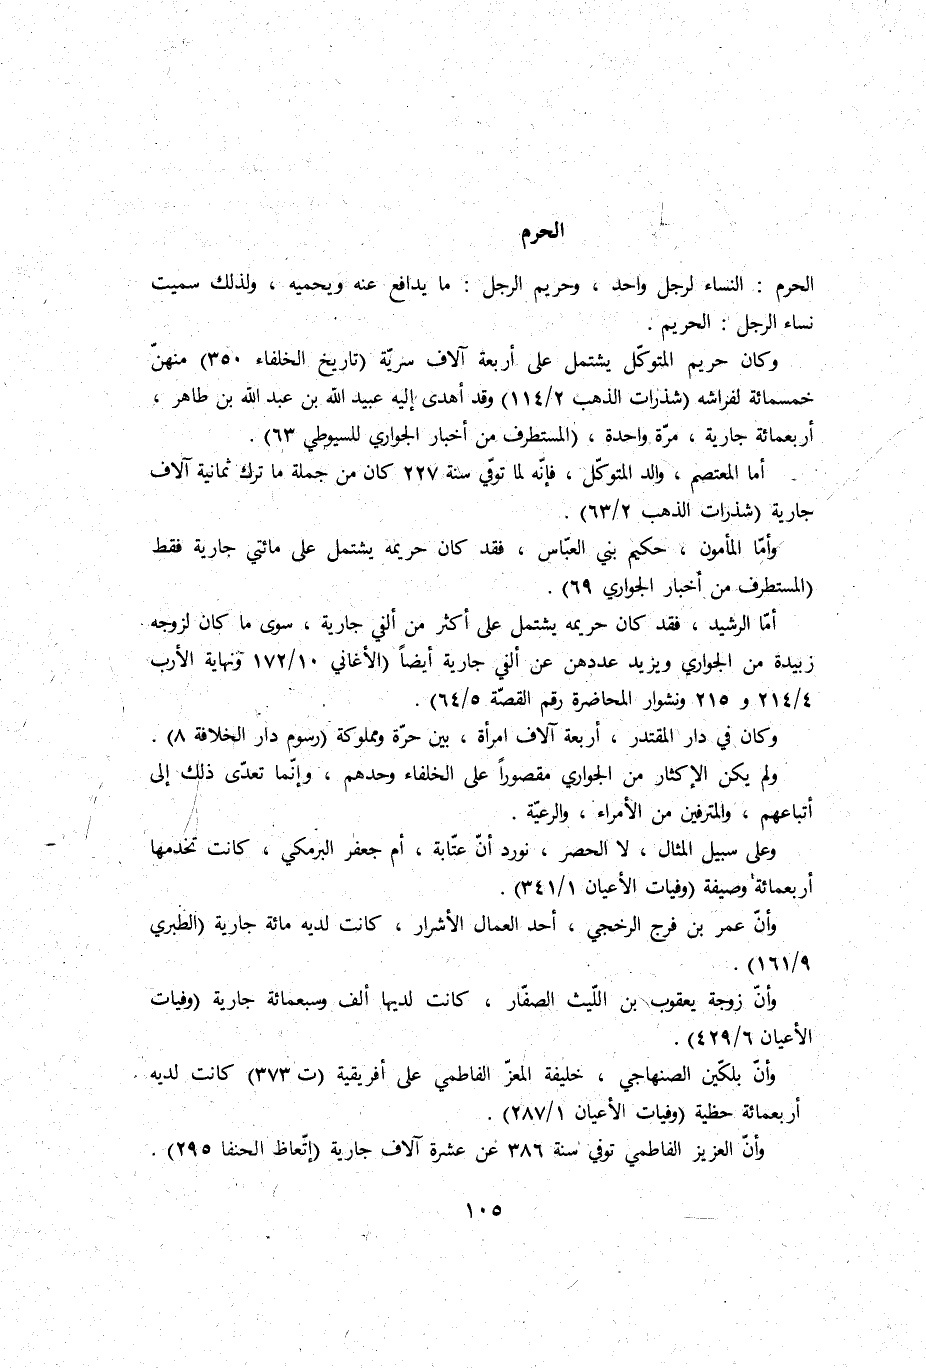 الحرم
الحرم : النساء لرجل واحد ، وحريم الرجل : ما يدافع عنه ويحميه ، ولذلك سميت
نساء الرجل : الحريم .
وكان حريم المتوكّل يشتمل على أربعة آلاف سريّة (تاريخ الخلفاء ٣٥٠) منهنّ
خمسمائة لفراشه (شذرات الذهب ١١٤/٢) وقد أهدى إليه عبيد الله بن عبد الله بن طاهر ،
أربعمائة جارية ، مرّة واحدة ، (المستطرف من أخبار الجواري للسيوطي ٦٣) .
أما المعتصم ، والد المتوكّل ، فإنّه لما توفّي سنة ٢٢٧ كان من جملة ما ترك ثمانية آلاف
جارية (شذرات الذهب ٦٣/٢) .
وأمّا المأمون ، حكيم بني العبّاس ، فقد كان حريمه يشتمل على مائتي جارية فقط
(المستطرف من أخبار الجواري ٦٩) .
أمّا الرشيد ، فقد كان حريمه يشتمل على أكثر من ألفي جارية ، سوى ما كان لزوجه
زبيدة من الجواري ويزيد عددهن عن ألفي جارية أيضاً (الأغاني ١٧٢/١٠ ونهاية الأرب
٢١٤/٤ و ٢١٥ ونشوار المحاضرة رقم القصّة ٦٤/٥) .
وكان في دار المقتدر ، أربعة آلاف امرأة ، بين حرّة ومملوكة (رسوم دار الخلافة ٨) .
ولم يكن الإكثار من الجواري مقصوراً على الخلفاء وحدهم ، وإنّما تعدّى ذلك إلى
أتباعهم ، والمترفين من الأمراء ، والرعيّة .
وعلى سبيل المثال ، لا الحصر ، نورد أنّ عتّابة ، أم جعفر البرمكي ، كانت تخدمها
أربعمائة وصيفة (وفيات الأعيان ٣٤١/١) .
وأنّ عمر بن فرج الرخجي ، أحد العمال الأشرار ، كانت لديه مائة جارية (الطبري
١٦١/٩) .
وأنّ زوجة يعقوب بن اللّيث الصفّار ، كانت لديها ألف وسبعمائة جارية (وفيات
الأعيان ٤٢٩/٦) .
وأنّ بلكّين الصنهاجي ، خليفة المعزّ الفاطمي على أفريقية (ت ٣٧٣) كانت لديه
أربعمائة حظية (وفيات الأعيان ٢٨٧/١) .
وأنّ العزيز الفاطمي توفي سنة ٣٨٦ عن عشرة آلاف جارية (إتّعاظ الحنفا ٢٩٥) .
١٠٥